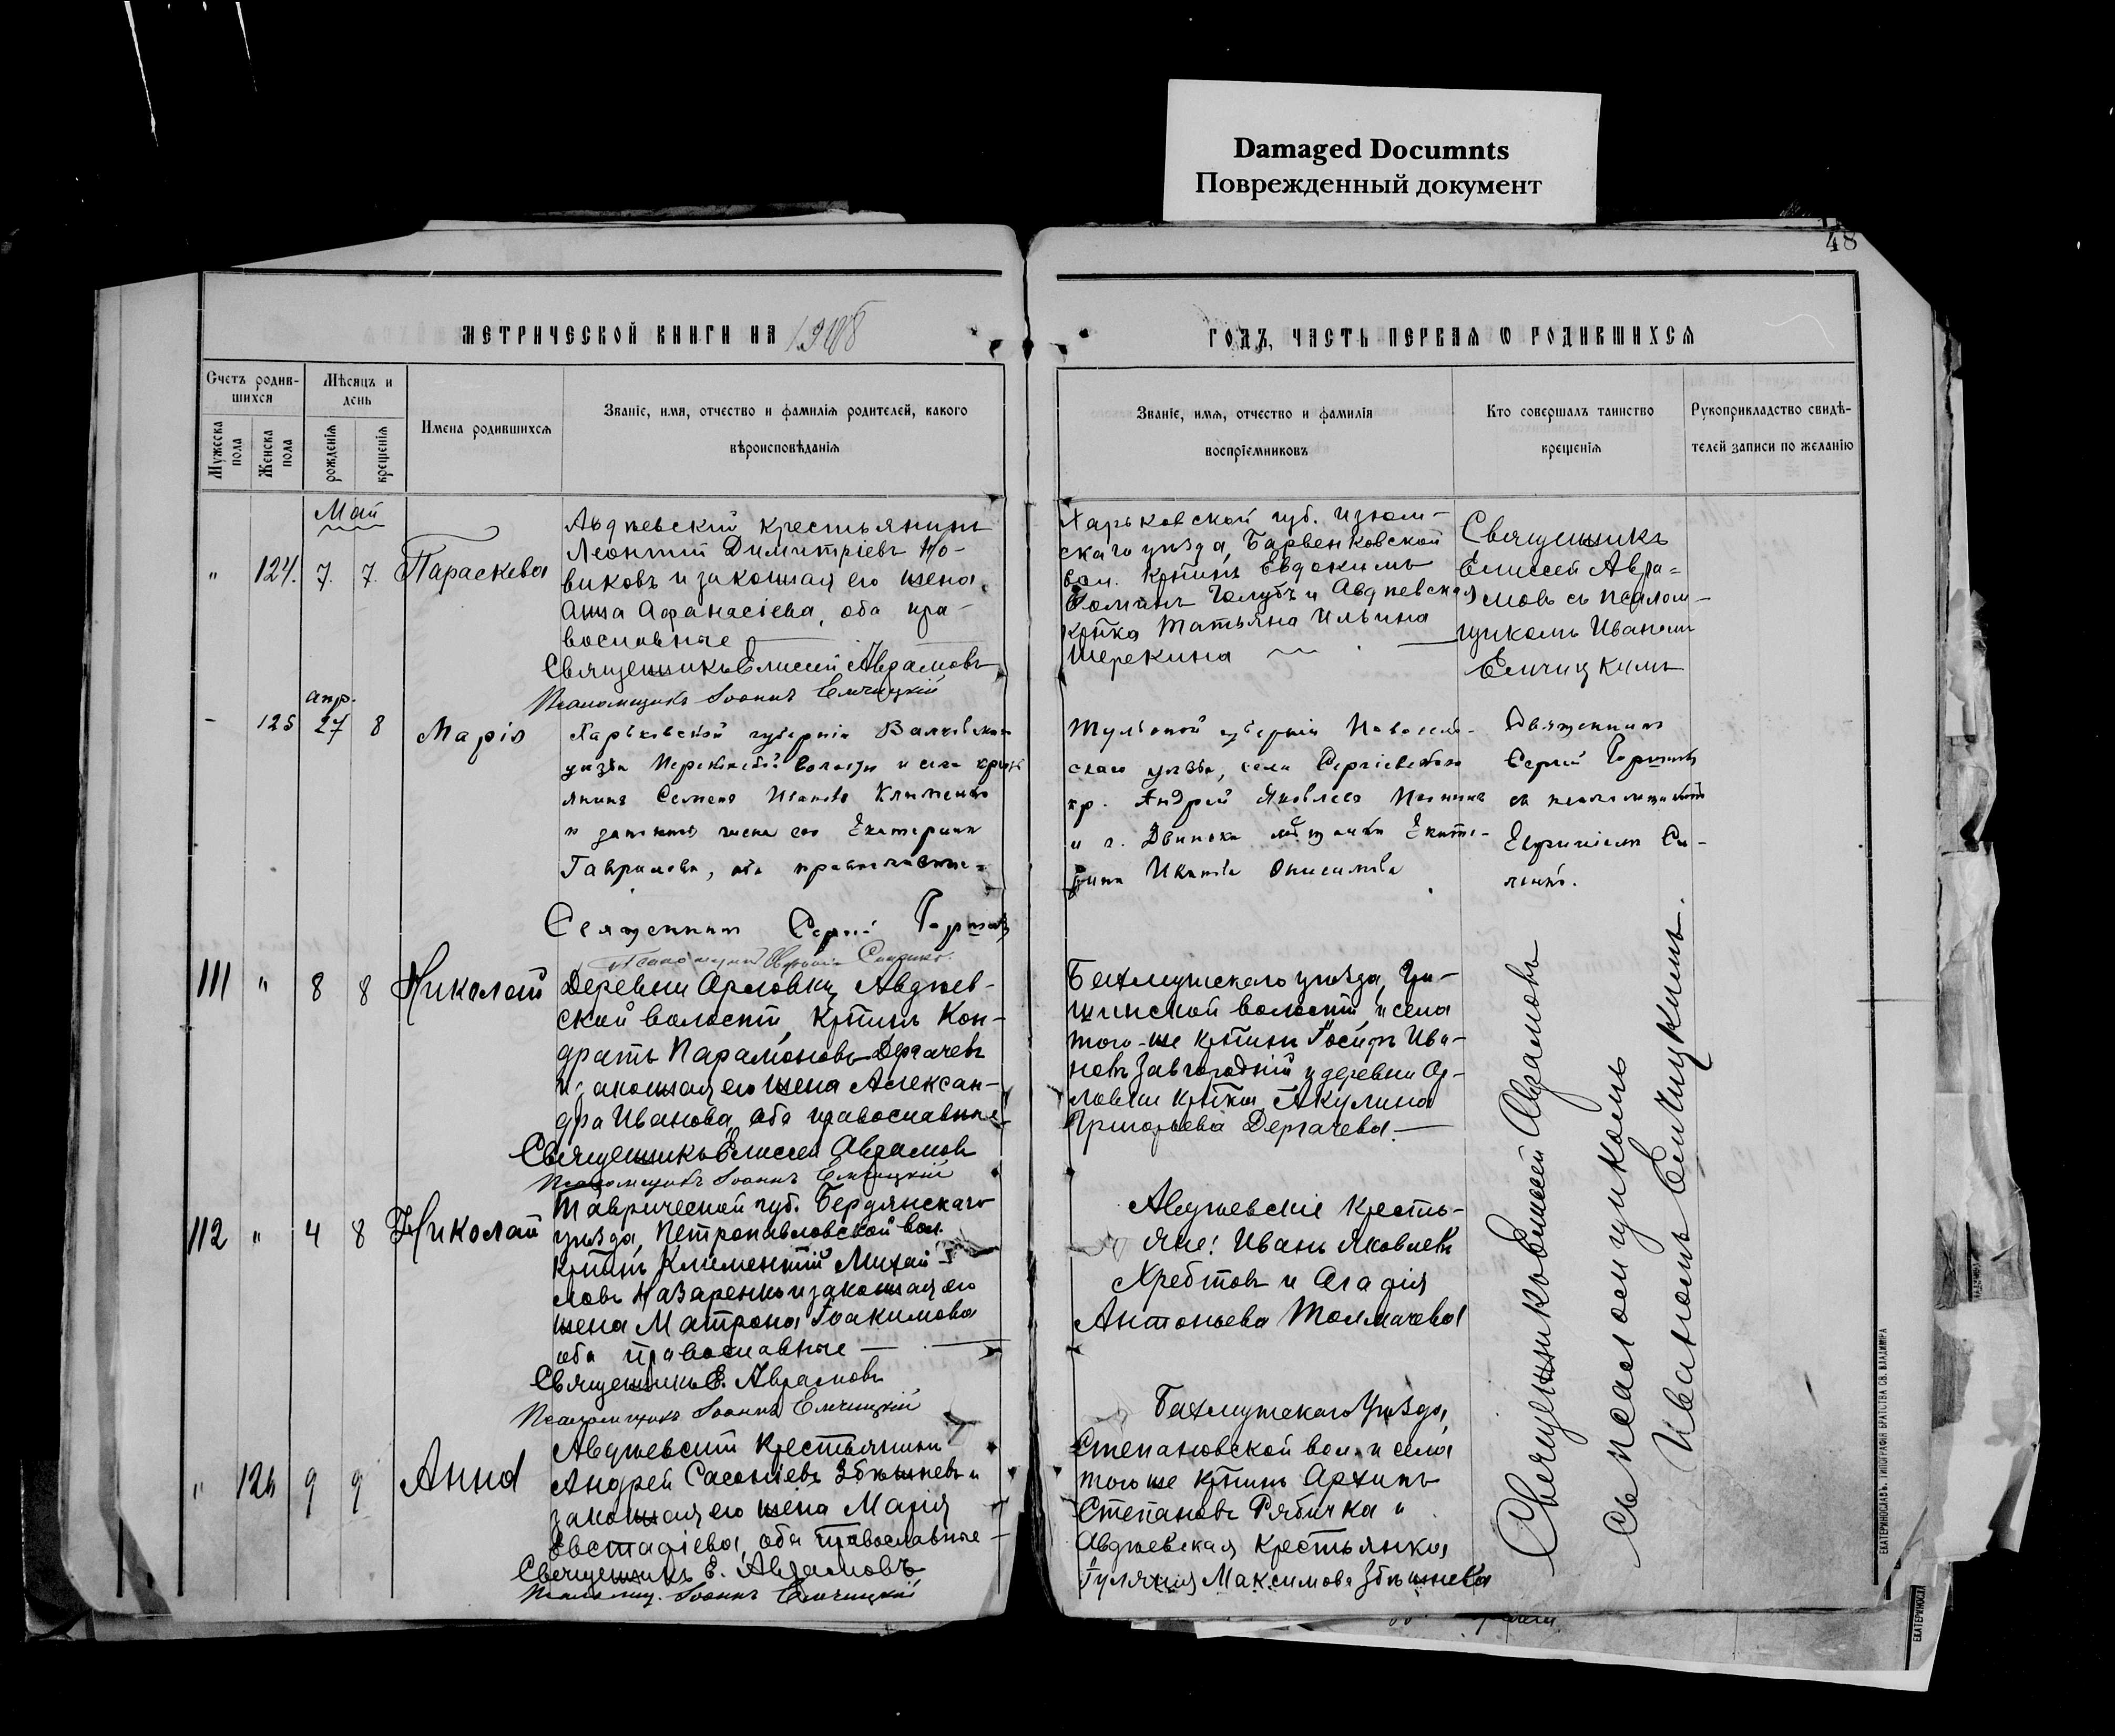 Damaged Documnts
Поврежденный документ
48
МЕТРИЧЕСКОЙ КНИГИ НА 1908
ГОДЪ, ЧАСТЬ ПЕРВАЯ Ѡ РОДИВШИХСЯ
Счетъ родив-
шихся
Мужеска
пола
Женска
пола
Мѣсяцъ и
день
рожденія
крещенія
Имена родившихся
Званіе, имя, отчество и фамилія родителей, какого
вѣроисповѣданія
Званіе, имя, отчество и фамилія
воспріемниковъ
Кто совершалъ таинство
крещенія
Рукоприкладство свидѣ-
телей записи по желанію
Май
" 124. 7. 7. Параскева
Авдѣевскій крестьянинъ
Леонтій Димитріевъ Но-
виковъ и законная его жена
Анна Афанасіева, оба пра-
вославные
Священникъ Елисей Аврамовъ
Псаломщикъ Іоаннъ Елчицкій
Харьковской губ. Изюм-
скаго уѣзда, Барвенковской
вол. крѣтинъ Евдокимъ
Голубъ и Авдѣевская
крѣтка Татьяна Ильина
Шерекина
Священникъ
Елисей Авра-
мовъ съ псалом-
щикомъ Иваномъ
Елчицкимъ
апр.
- 125 27 8 Марія
Харьковской губерніи Валковскаго
уѣзда волости и села крест
янинъ Семенъ Ивановъ Клименко
и законная жена его Екатерина
Гаврилова, оба православные
Священникъ Сергій
Тульской губерніи Новосиль-
скаго уѣзда, села Сергіевскаго
кр. Андрей Яковлевъ
и г. Двинска мѣщанка Екате-
рина Иванова Онисимова
Священникъ
Сергій
съ псаломщикомъ
111 " 8 8 Николай
Деревни Орловки, Авдѣев-
ской волости, крѣтинъ Кон-
дратъ Парамоновъ Дергачевъ
и законная его жена Алексан-
дра Иванова, оба православные
Священникъ Елисей Аврамовъ
Псаломщикъ Іоаннъ Елчицкій
Бахмутскаго уѣзда, Гри-
шинской волости и села
того-же крѣтинъ Іосифъ Ива-
новъ Завгородній и деревни Ор-
ловки крѣтка Акулина
Григорьева Дергачева.
112 " 4 8 Николай
Таврической губ. Бердянскаго
уѣзда, Петропавловской вол.
крѣтинъ Климентій Михай-
ловъ Назаренко и законная его
жена Матрона Іоакимова
оба православные
Священникъ Е. Аврамовъ
Псаломщикъ Іоаннъ Елчицкій
Авдѣевскіе кресть-
яне: Иванъ Яковлевъ
Хребтовъ и Агафія
Антоньева Толмачева
" 126 9 9 Анна
Авдѣевскій крестьянинъ
Андрей
законная его жена Марія
Евстафіева, оба православные
Священникъ Е. Аврамовъ
Псаломщ. Іоаннъ Елчицкій
Бахмутскаго уѣзда,
Степановской вол. и села
того же крѣтинъ Архипъ
Степановъ Рябичка и
Авдѣевская крестьянка
Іулянія Максимова
Священникъ Елисей Аврамовъ
съ псаломщикомъ
Иваномъ Елчицкимъ.
ЕКАТЕРИНОСЛАВЪ. ТИПОГРАФІЯ БРАТСТВА СВ. ВЛАДИМІРА